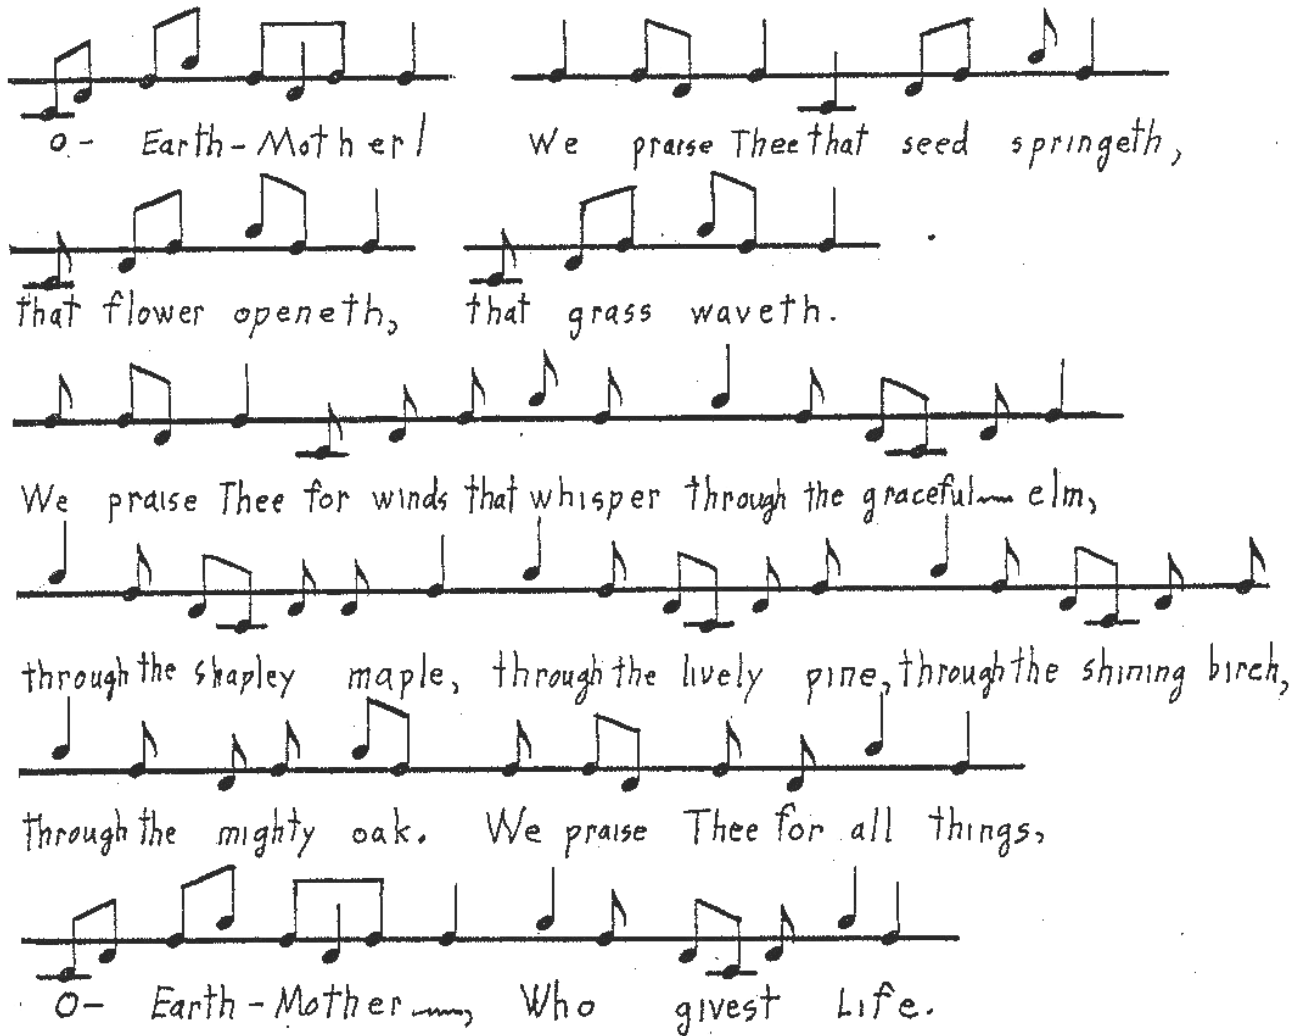 O- Earth-Mother! We praise Thee that seed springeth,
that flower openeth, that grass waveth.
We praise Thee for winds that whisper through the graceful~ elm,
through the shapley maple, through the lively pine, through the shining birch,
through the mighty oak. We praise Thee for all things,
O- Earth-Mother~, Who givest Life.